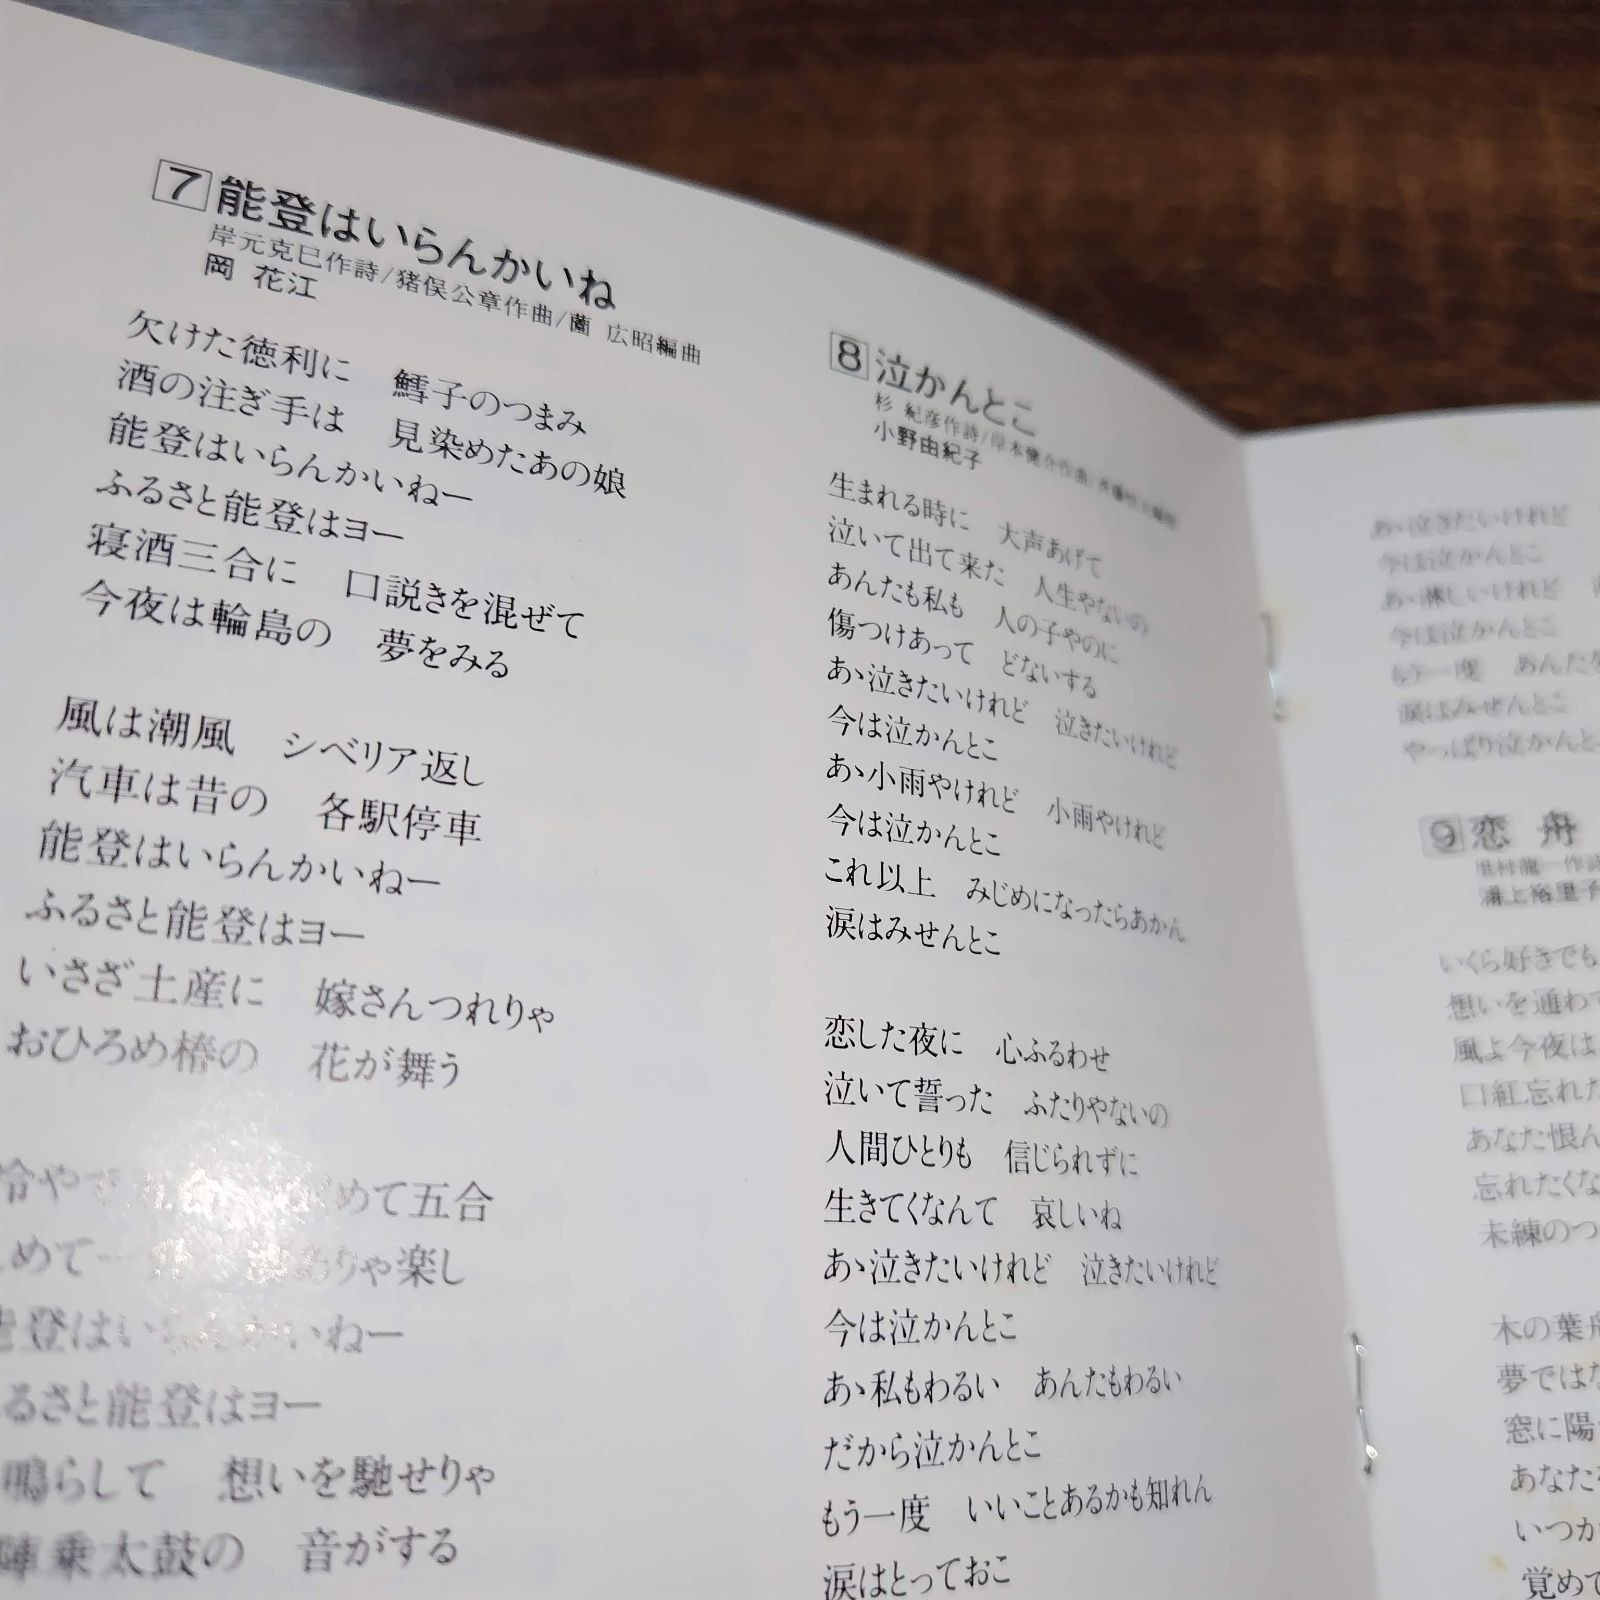 7 能登はいらんかいね
岸元克巳作詩/猪俣公章作曲/薗 広昭編曲
岡 花江
欠けた徳利に 鱈子のつまみ
酒の注ぎ手は 見染めたあの娘
能登はいらんかいねー
ふるさと能登はヨー
寝酒三合に 口説きを混ぜて
今夜は輪島の 夢をみる
風は潮風 シベリア返し
汽車は昔の 各駅停車
能登はいらんかいねー
ふるさと能登はヨー
いさざ土産に 嫁さんつれりゃ
おひろめ椿の 花が舞う
冷やで めて五合
めて… りゃ楽し
登はい かいねー
るさと能登はヨー
鳴らして 想いを馳せりゃ
陣乗太鼓の 音がする
8 泣かんとこ
杉 紀彦作詩/岸本健介作曲/
小野由紀子
生まれる時に 大声あげて
泣いて出て来た 人生やないの
あんたも私も 人の子やのに
傷つけあって どないする
あゝ泣きたいけれど 泣きたいけれど
今は泣かんとこ
あゝ小雨やけれど 小雨やけれど
今は泣かんとこ
これ以上 みじめになったらあかん
涙はみせんとこ
恋した夜に 心ふるわせ
泣いて誓った ふたりやないの
人間ひとりも 信じられずに
生きてくなんて 哀しいね
あゝ泣きたいけれど 泣きたいけれど
今は泣かんとこ
あゝ私もわるい あんたもわるい
だから泣かんとこ
もう一度 いいことあるかも知れん
涙はとっておこ
あゝ泣きたいけれど
今は泣かんとこ
あゝ淋しいけれど
今は泣かんとこ
もう一度 あんた
涙はみせんとこ
やっぱり泣かんと
9 恋 舟
龍一作詩
いくら好きでも
想いを通わ
風よ今夜は
口紅忘れた
あなた恨ん
忘れたくな
未練のつ
木の葉舟
夢ではな
窓に陽
あなた
いつか
覚めて